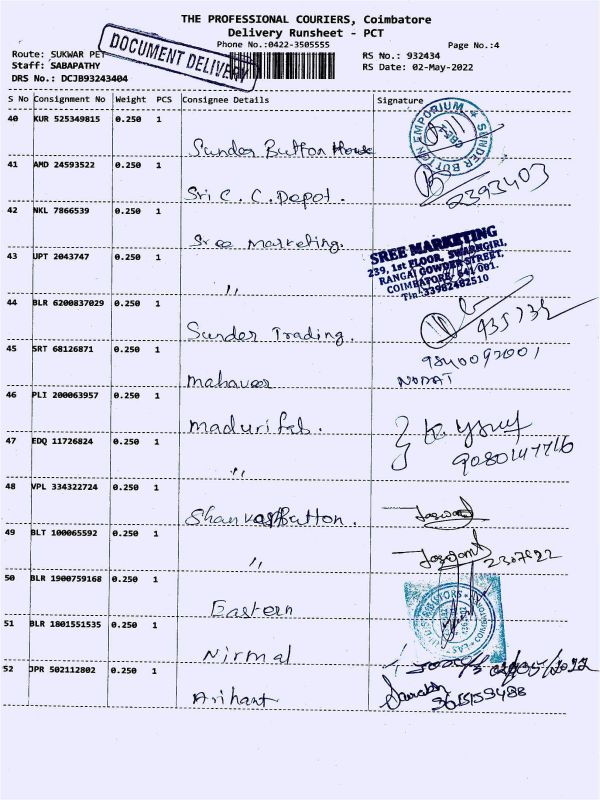 THE PROFESSIONAL COURIERS, Coimbatore
Delivery Runsheet - PCT
Phone No.:0422-3505555
Page No.:4
Route: SUKWAR PET
RS No.: 932434
Staff: SABAPATHY
RS Date: 02-May-2022
DRS No.: DCJB93243404
DOCUMENT DELIVERY
S No Consignment No Weight PCS Consignee Details Signature
40 KUR 525349815 0.250 1
Sunder Button House
BUTTON EMPORIUM SUNDER
41 AMD 24593522 0.250 1
Sri C. C. Depot.
2393403
42 NKL 7866539 0.250 1
Sree Marketing.
SREE MARKETING
239, 1st FLOOR, SWARNGIRI,
RANGAI GOWDER STREET,
COIMBATORE - 641 001.
Tin: 33982482510
43 UPT 2043747 0.250 1
"
44 BLR 6200837029 0.250 1
Sunder Trading.
45 SRT 68126871 0.250 1
Mahaveer
46 PLI 200063957 0.250 1
Madurifab.
47 EDQ 11726824 0.250 1
"
48 VPL 334322724 0.250 1
Button.
49 BLT 100065592 0.250 1
"
50 BLR 1900759168 0.250 1
Eastern
51 BLR 1801551535 0.250 1
Nirmal
52 JPR 502112802 0.250 1
Arihant